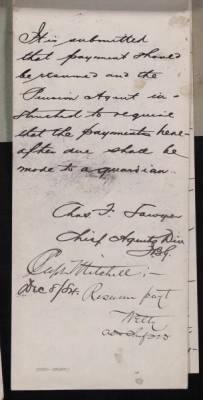 It is submitted
that payment should
be resumed and the
Pension Agent in-
structed to require
that the payments here-
after due shall be
made to a guardian.
Chas F. Sawyer
Chief Agents Div
Capt Mitchell:-
Dec 8/84. Resume payt